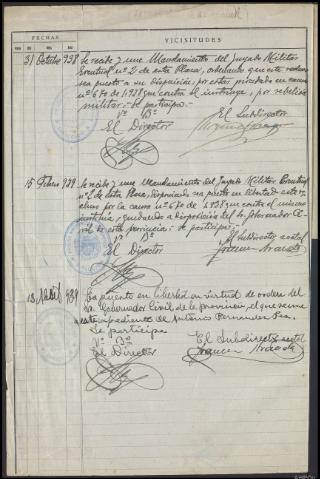 FECHAS
VICISITUDES
31 Octubre 938
Se recibe y une Mandamiento del Juzgado Militar
Eventual nº 2 de esta Plaza, ordenando que este recluso
sea puesto a su disposición, por estar procesado en causa
nº 670 de 1.938 que contra el instruye, por rebelión
militar.- Se participa.-
Vº Bº
El Director
El Subdirector
15 Febro 939
Se recibe y une Mandamiento del Juzgado Militar Eventual
nº 2 de esta Plaza, disponiendo sea puesto en libertad este re-
cluso por la causa nº 670 de 1938 que contra el mismo
instruía, quedando a disposición del Sr. Gobernador Ci-
vil de esta provincia.- Se participa.-
Vº Bº
El Director
El Subdirector acctal
13 Abril 939
Es puesto en libertad en virtud de orden del
Sr. Gobernador Civil de la provincia, el que se une
al expediente de Antonio Fernandez
Se participa
Vº Bº
El Director
El Subdirector acctal